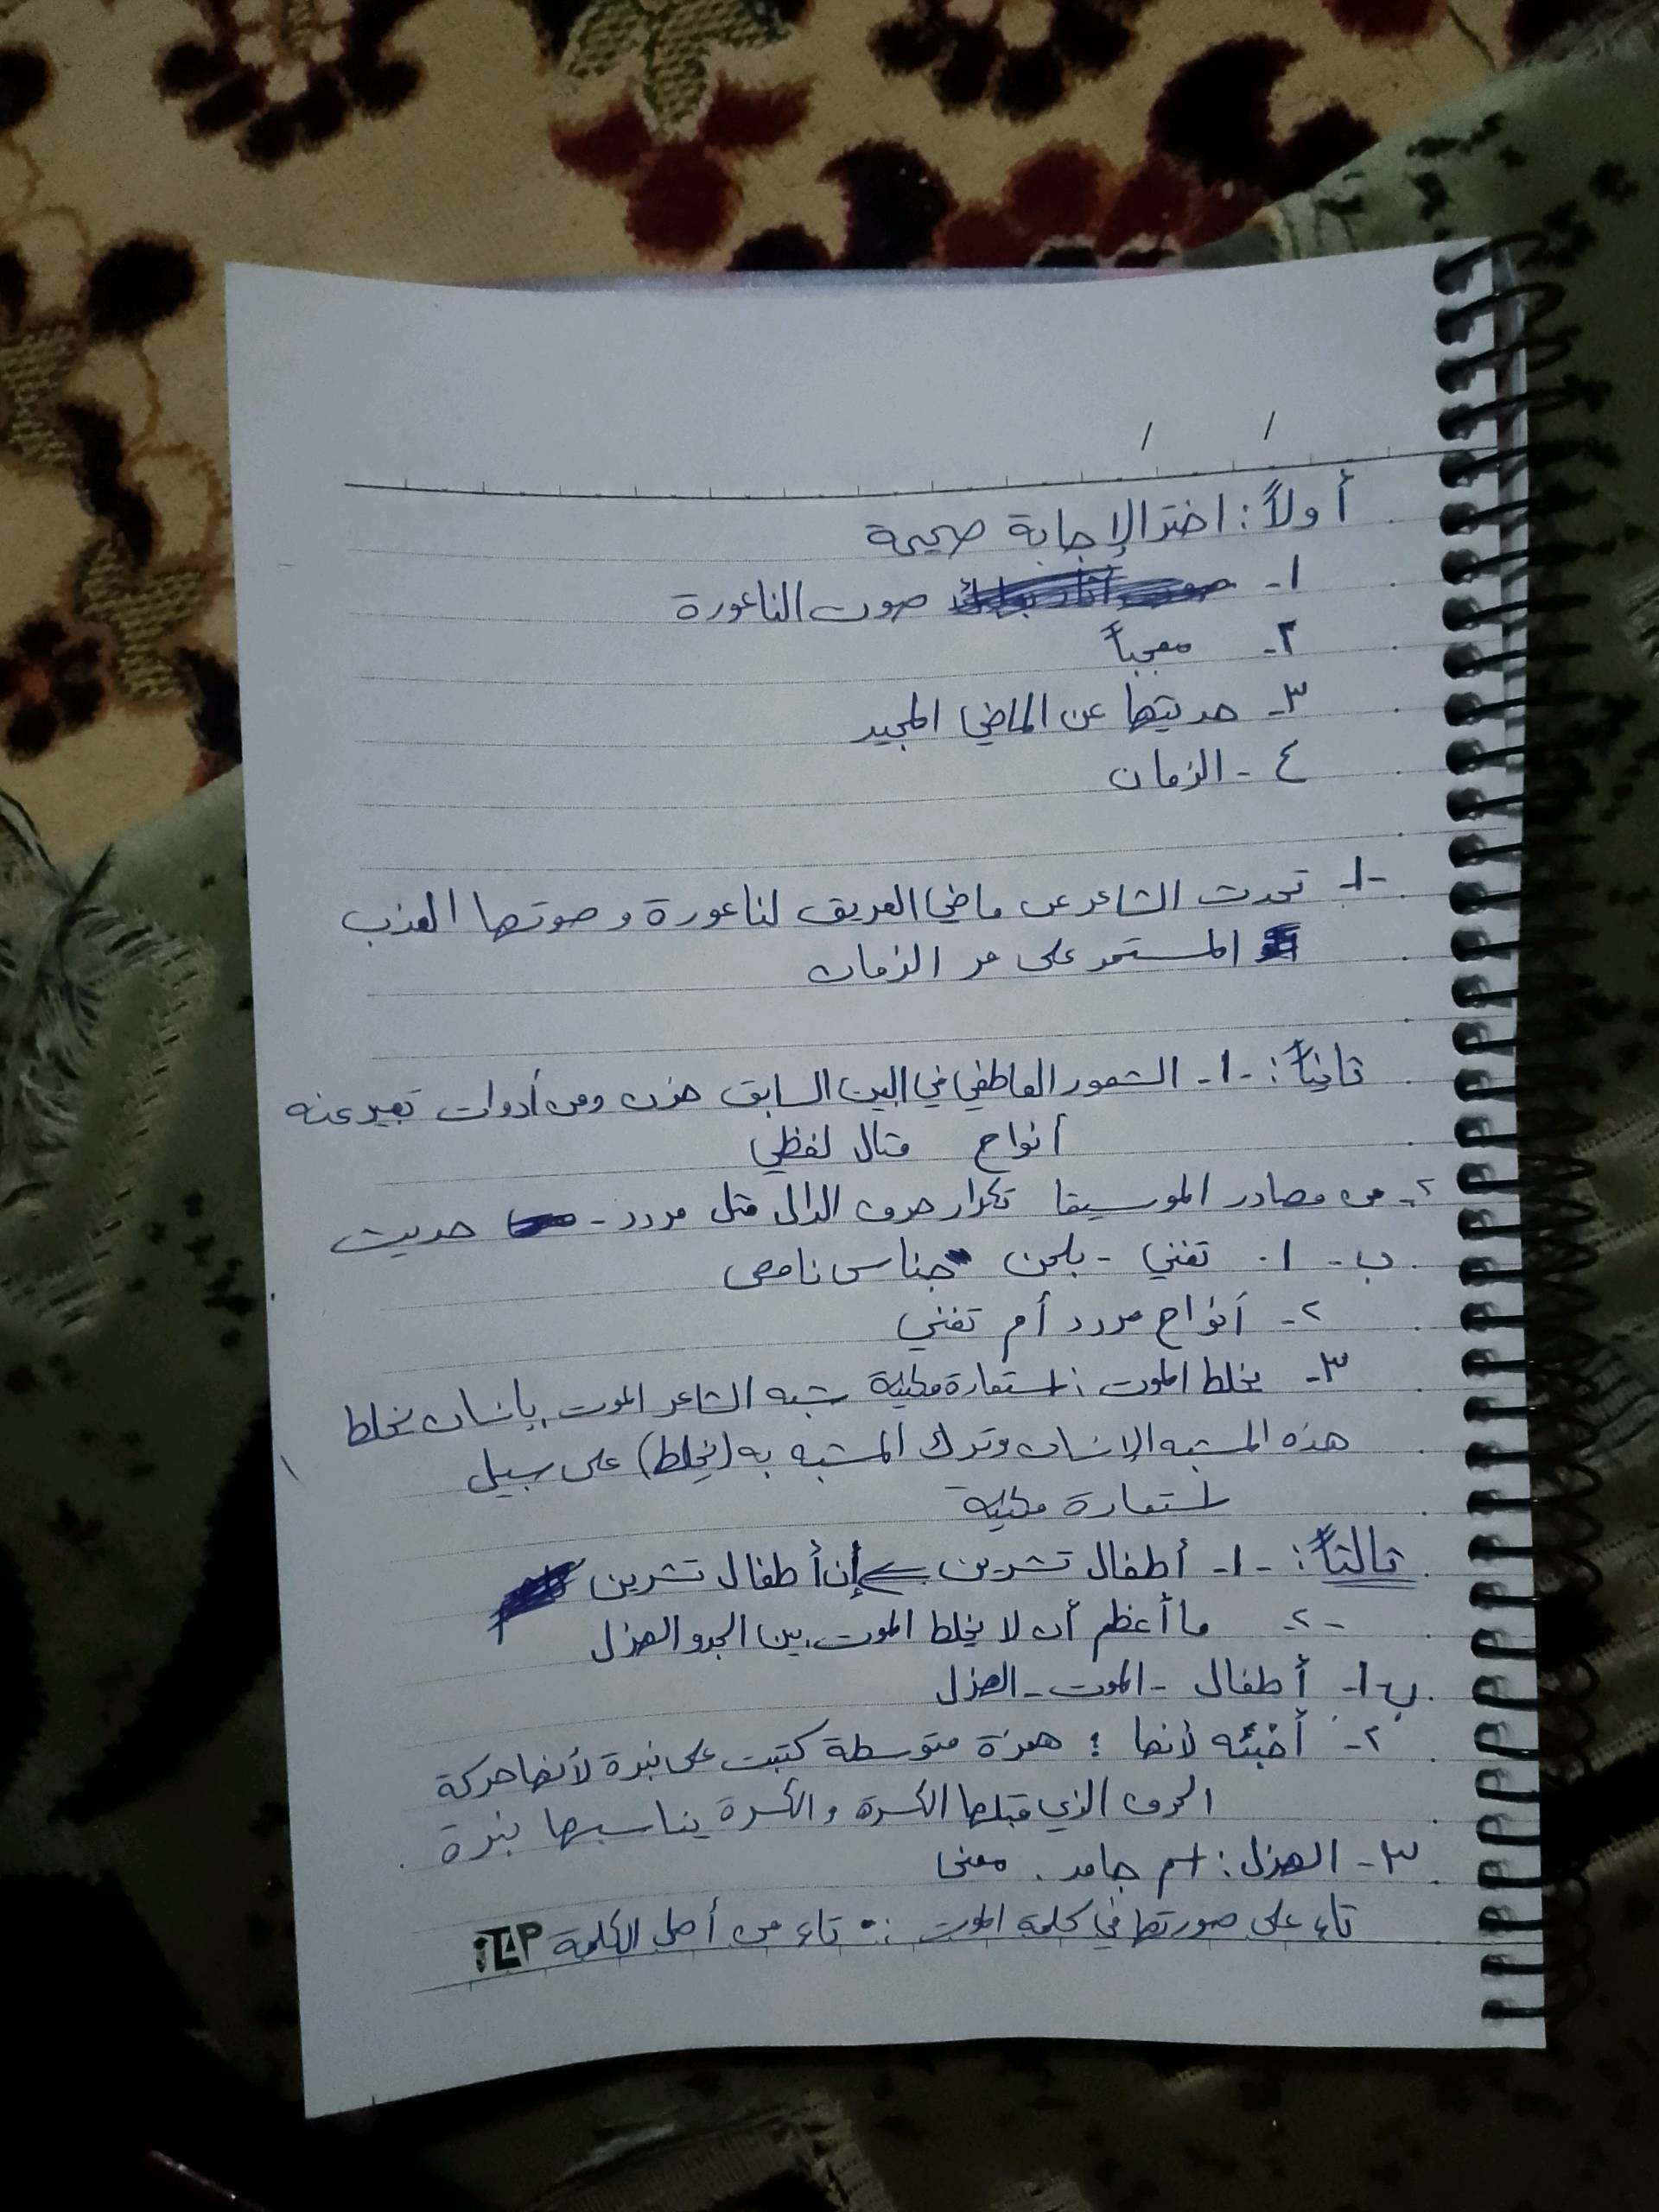 / /
أولاً: اختر الإجابة صحيحة
١- صوت الناعورة
٢- معجباً
٣- حديثها عن الماضي المجيد
٤- الزمان
-١- تحدث الشاعر عن ماضي العريق لناعورة و صوتها العذب
المستمر على مر الزمان
ثانياً: -١- الشعور العاطفي في البيت السابق حزن ومن أدوات تعبير عنه
أنواح مثال لفظي
٢- من مصادر الموسيقا تكرار حرف الدال مثل مردد - حديث
ب- ١- تغني - بلحن جناس ناقص
٢- أنواح مردد أم تغني
٣- يخلط الموت: استعارة مكنية شبه الشاعر الموت بإنسان يخلط
هذه المشبه الإنسان وترك المشبه به (يخلط) على سبيل
استعارة مكنية
ثالثاً: -١- أطفال تشرين إن أطفال تشرين
-٢- ما أعظم أن لا يخلط الموت بين الجد و الهزل
ب ١- أطفال - الموت - الهزل
٢- أخبئه لأنها: همزة متوسطة كتبت على نبرة لأنها حركة
الحرف الذي قبلها الكسرة و الكسرة يناسبها نبرة
٣- الهزل: اسم جامد. معنى
تاء على صورتها في كلمة الموت: تاء من أصل الكلمة